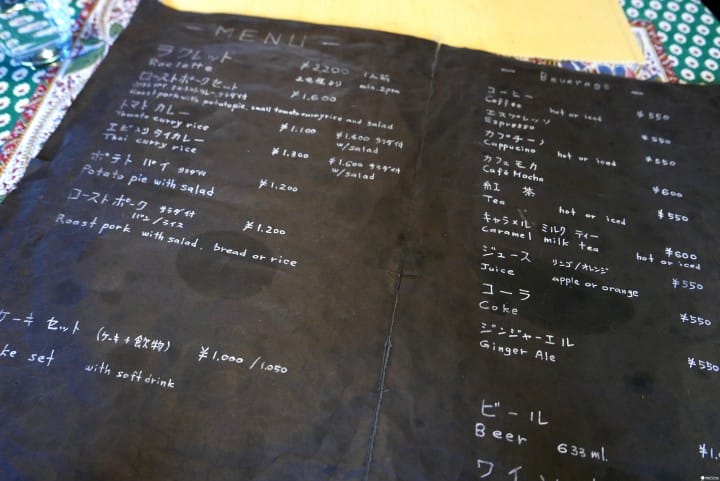 — MENU —
ラクレット ¥2200 1人前
Raclette 2名様より min. 2pm
ローストポークセット ¥1,600
トマトカレー ¥1,100 ¥1,400 サラダ付
Tomato curry rice w/salad
エビトリタイカレー ¥1,300 ¥1,600 サラダ付
Thai curry rice w/salad
ポテトパイ サラダ付 ¥1,200
Potato pie with salad
ローストポーク サラダ付 パン/ライス ¥1,200
Roast pork with salad, bread or rice
ケーキセット (ケーキ+飲物) ¥1,000/1,050
ke set with soft drink
— Beverage —
コーヒー ¥550
Coffee hot or iced
エスプレッソ ¥550
Espresso
カプチーノ ¥550
Cappucino hot or iced
カフェモカ ¥600
Café Mocha
紅茶 ¥550
Tea hot or iced
キャラメルミルクティー ¥600
Caramel milk tea hot or iced
ジュース リンゴ/オレンジ ¥550
Juice apple or orange
コーラ ¥550
Coke
ジンジャーエル ¥550
Ginger Ale
ビール
Beer 633ml.
ワイン